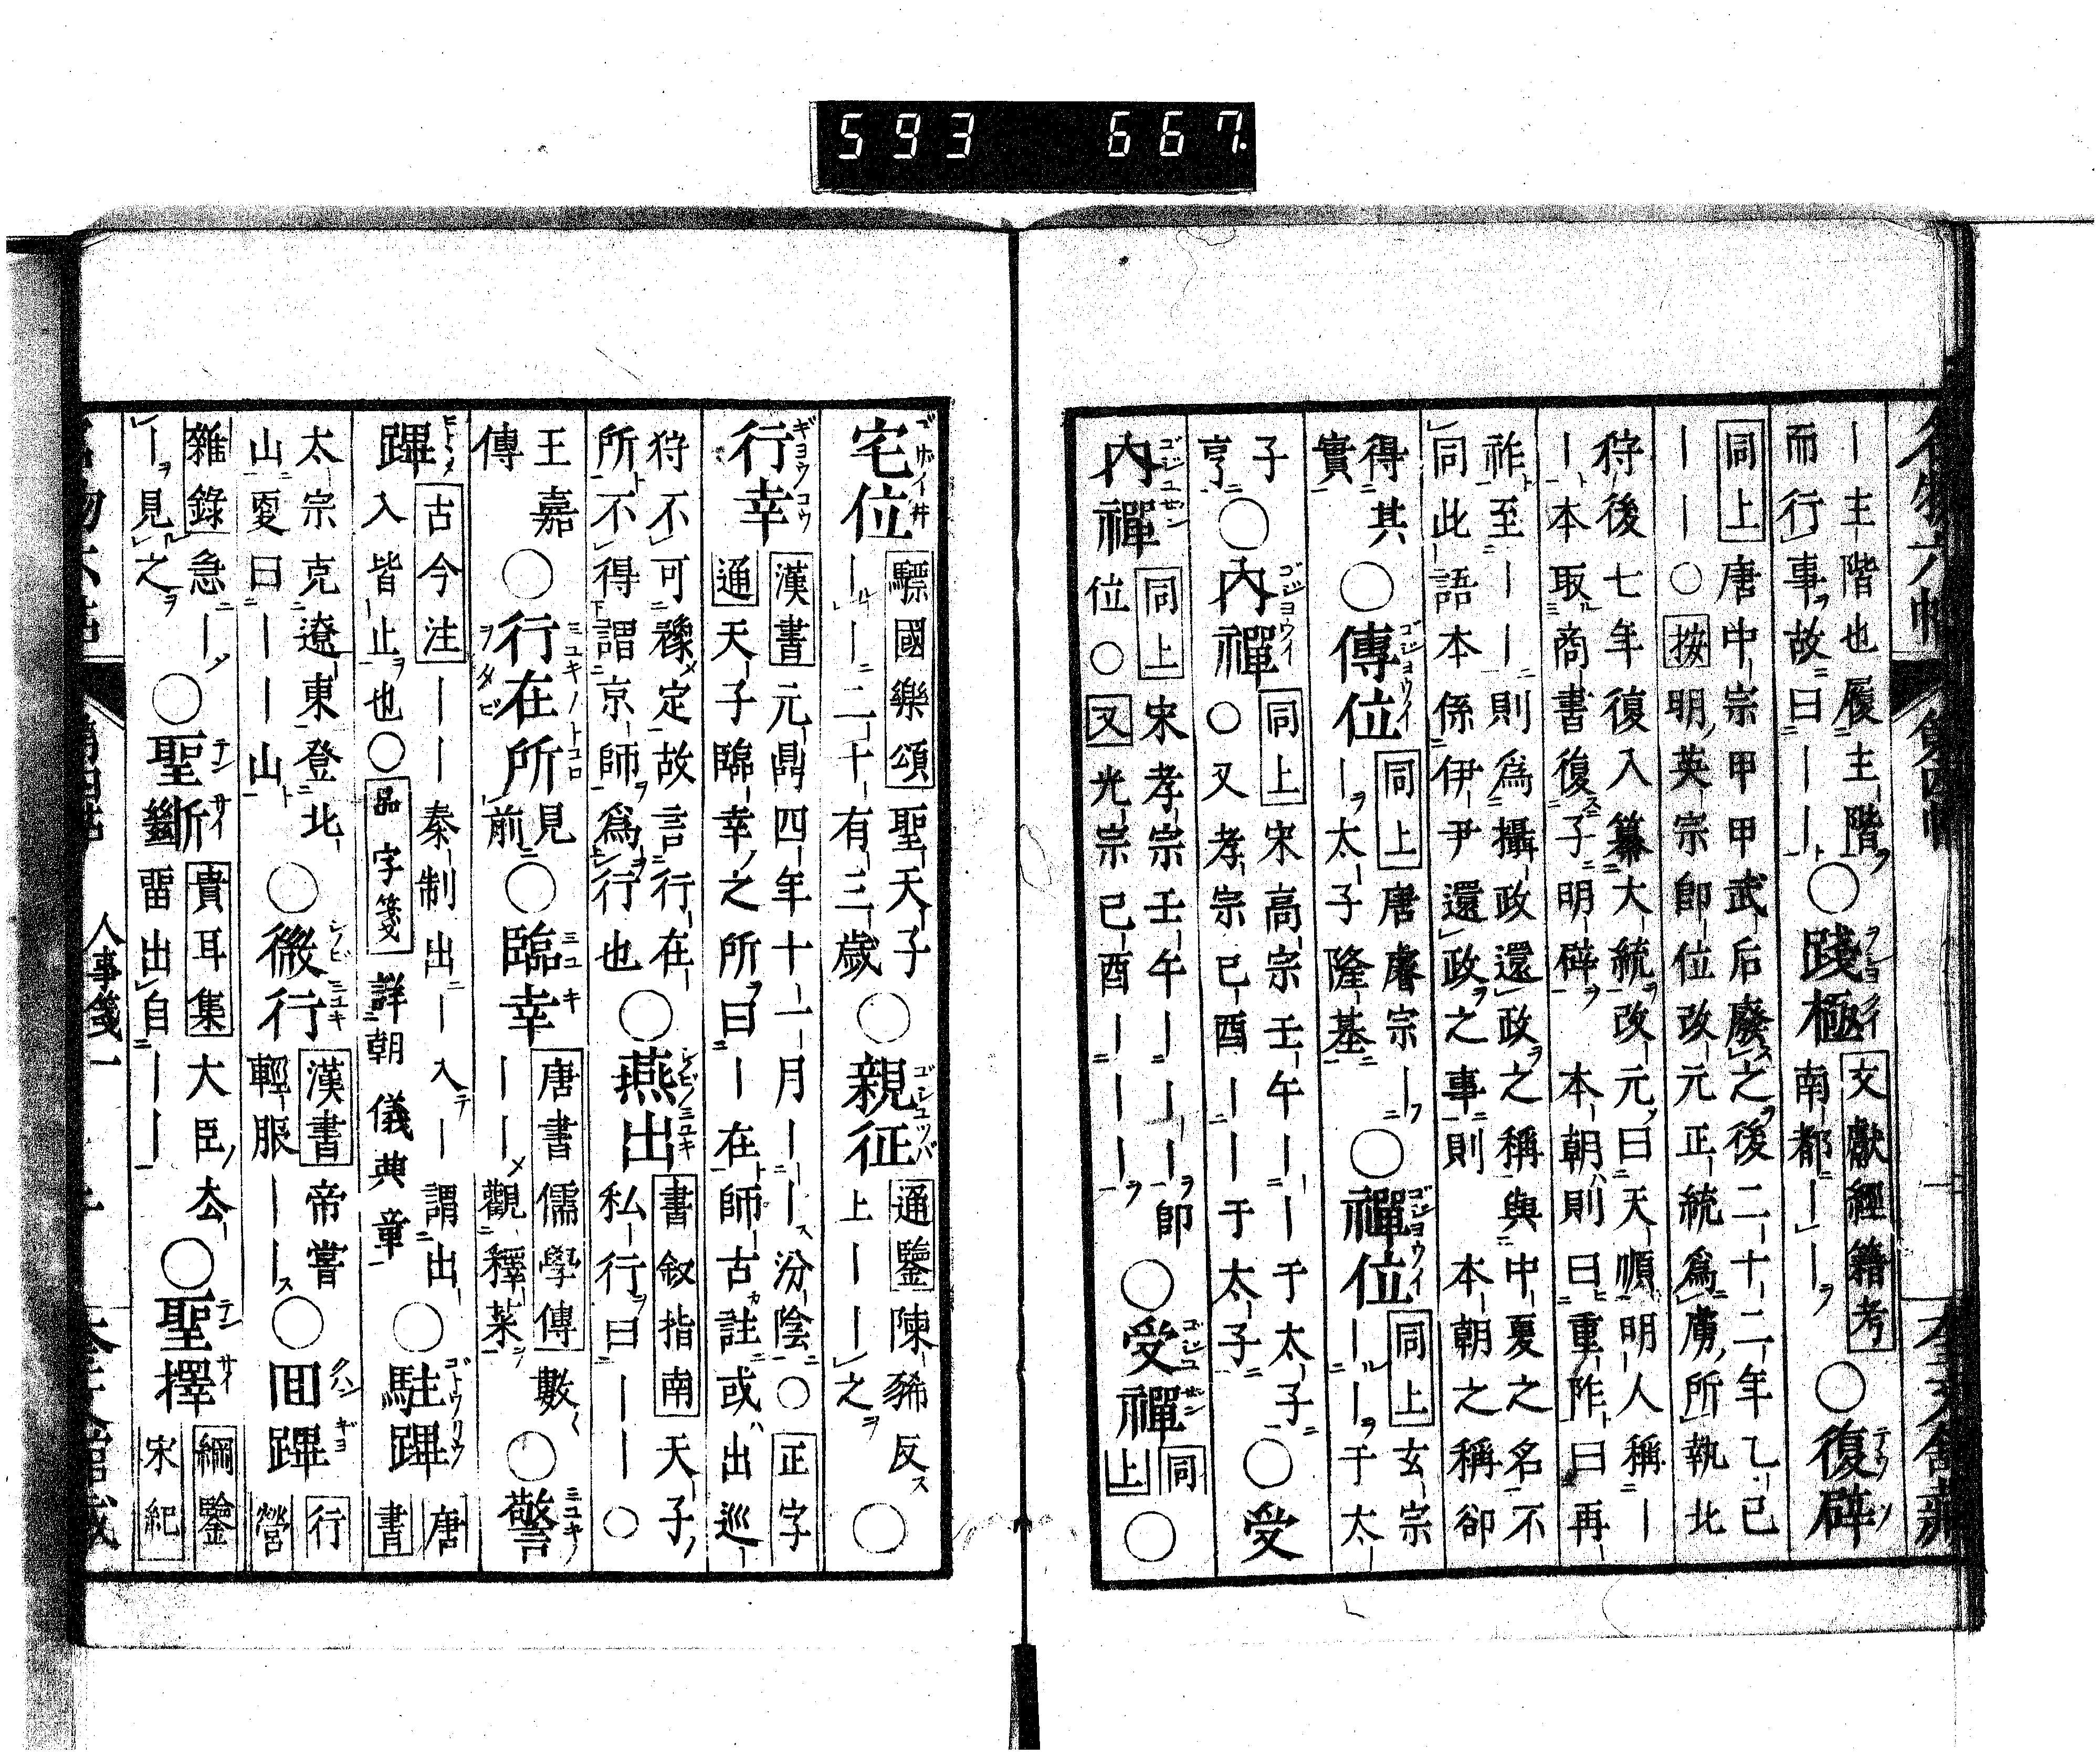 593 667
｜主階也履主階
而行事故曰｜｜○踐極 文獻經籍考 南都｜｜○復辟
同上 唐中宗甲甲武后廢之後二十二年乙巳
｜｜○按明英宗即位改元正統爲虜所執北
狩後七年復入纂大統改元曰天順明人稱｜
｜本取商書復子明辟 本朝則曰重阼曰再
祚至｜｜則爲攝政還政之稱與中夏之名不
同此語本係伊尹還政之事則 本朝之稱卻
得其實○傳位 同上 唐睿宗｜太子隆基○禪位 同上 玄宗｜｜于太
子亨○內禪 同上 宋高宗壬午｜｜于太子○又孝宗已酉｜｜于太子○受
內禪 同上 宋孝宗壬午｜｜｜即位○又光宗已酉｜｜｜○受禪 同上○
宅位 驃國樂頌 聖天子｜｜二十有三歲○親征 通鑒 陳豨反上｜｜之○
行幸 漢書 元鼎四年十一月｜｜汾陰○正字
通 天子臨幸之所曰｜在師古註或出巡
狩不可豫定故言行在
所不得謂京師爲行也○燕出 書敘指南 天子私行曰｜｜○
王嘉傳○行在所 見前○臨幸 唐書儒學傳 數｜｜觀釋菜○警
蹕 古今注 ｜｜秦制出｜入｜謂出
入皆止也○品字箋 詳朝儀典章○駐蹕 唐書
太宗克遼東登北
山夏曰｜｜山○微行 漢書 帝嘗輕服｜｜○回蹕 行營
雜錄 急｜｜見之○聖斷 貴耳集 大臣去留出自｜｜○聖擇 綱鑒宋紀
第四帖 人事箋一